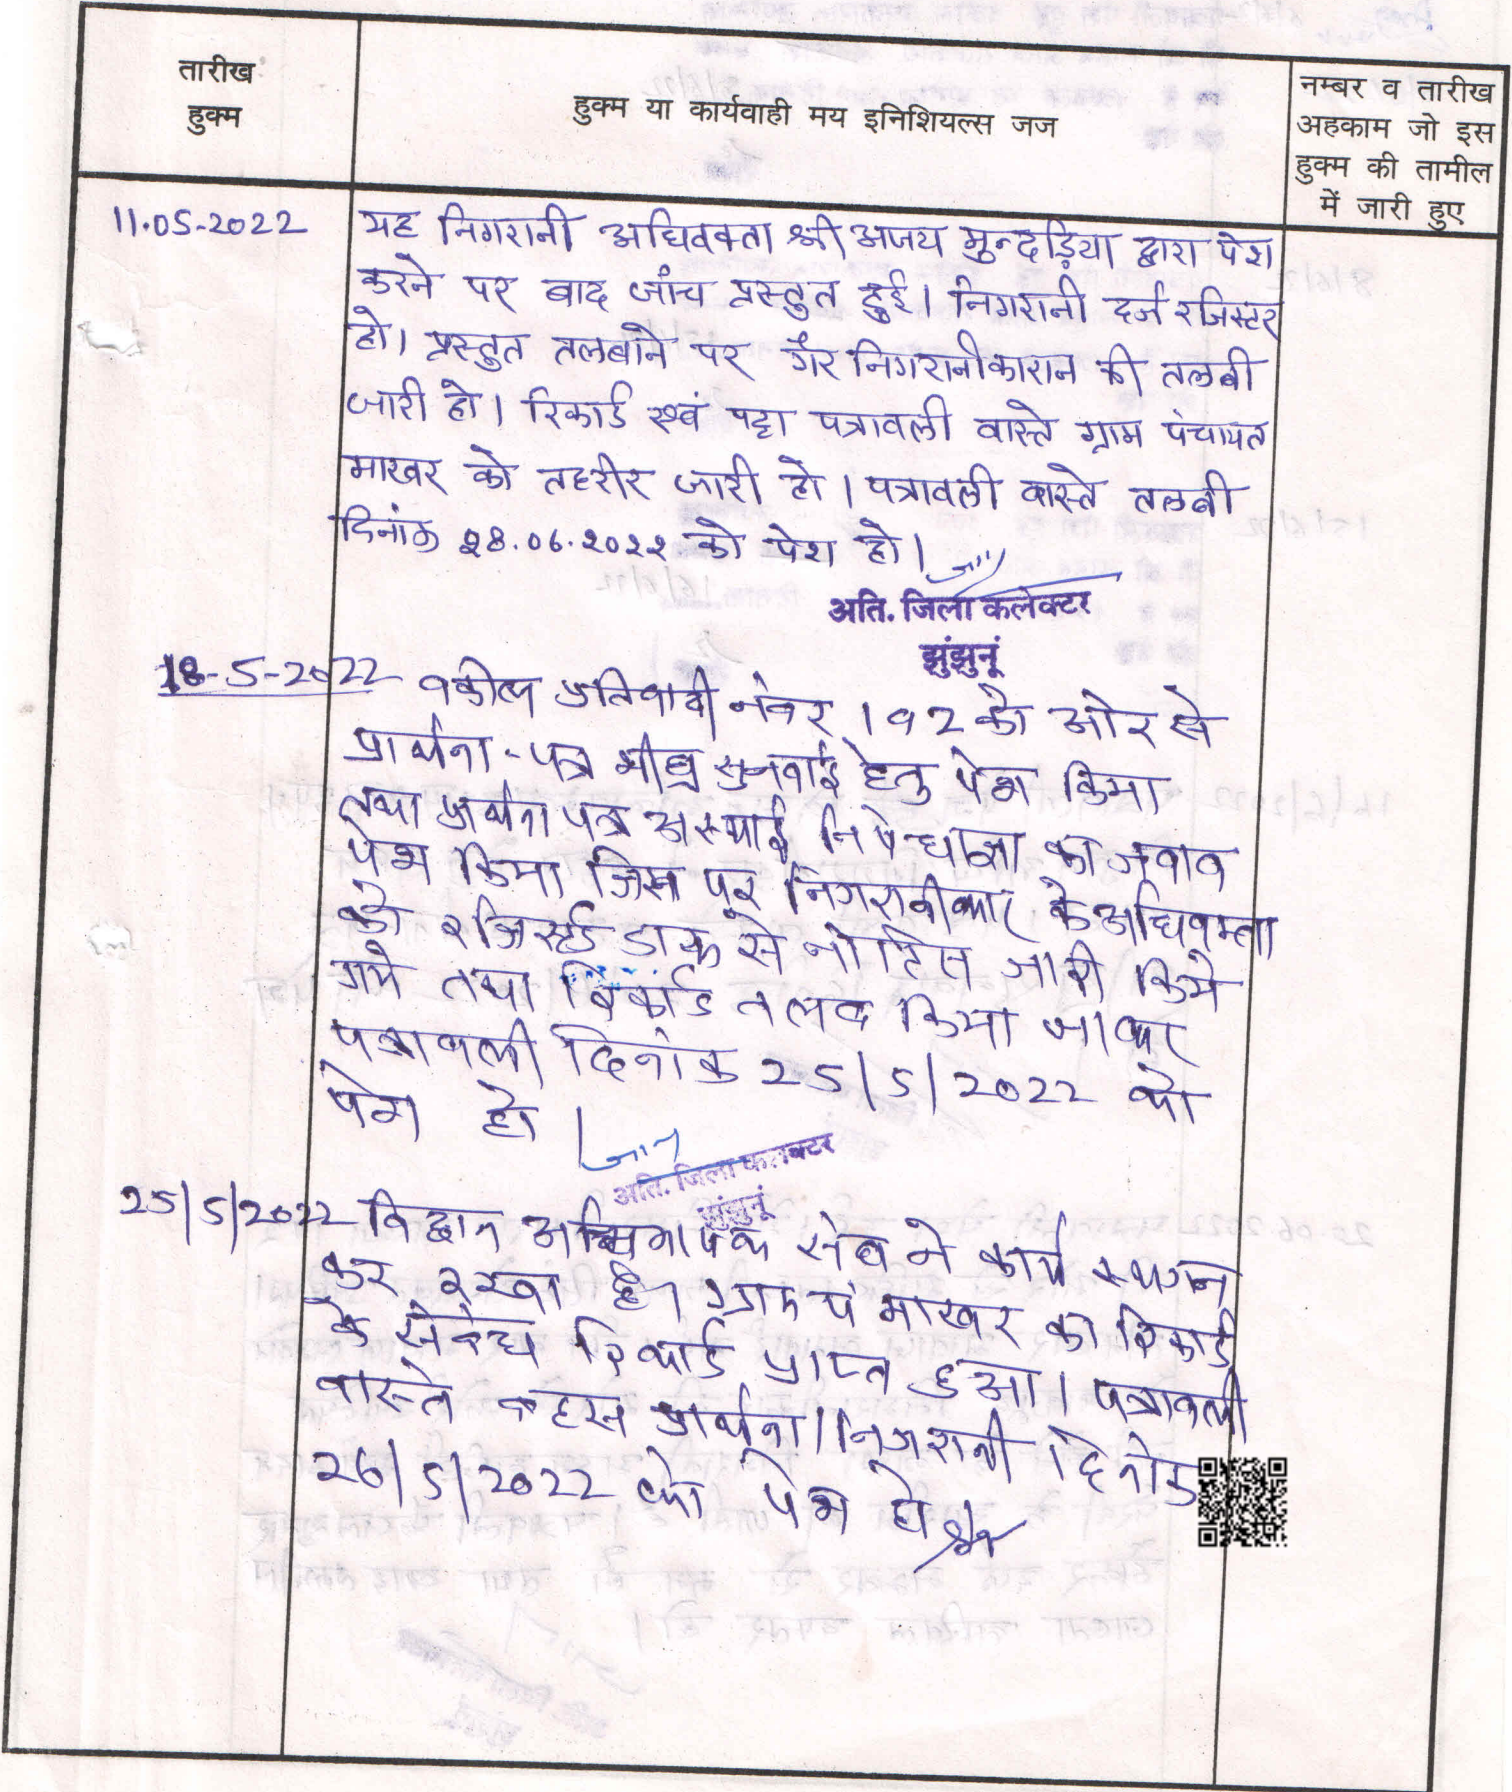 तारीख
हुक्म
हुक्म या कार्यवाही मय इनिशियल्स जज
नम्बर व तारीख
अहकाम जो इस
हुक्म की तामील
में जारी हुए
11.05-2022
यह निगरानी अधिवक्ता श्री अजय मुन्दड़िया द्वारा पेश
करने पर बाद जांच प्रस्तुत हुई। निगरानी दर्ज रजिस्टर
हो। प्रस्तुत तलबाने पर गैर निगरानीकारान की तलबी
जारी हो। रिकार्ड एवं पट्टा पत्रावली वास्ते ग्राम पंचायत
माखर को तहरीर जारी हो। पत्रावली वास्ते तलबी
दिनांक 28.06.2022 को पेश हो।
अति. जिला कलेक्टर
झुंझुनूं
18-5-2022 वकील प्रतिवादी नंबर 1 व 2 की ओर से
प्रार्थना-पत्र शीघ्र सुनवाई हेतु पेश किया
तथा प्रार्थना पत्र अस्थाई निषेधाज्ञा का जवाब
पेश किया जिस पर निगरानीकार के अधिवक्ता
को रजिस्टर्ड डाक से नोटिस जारी किये
गये तथा रिकॉर्ड तलब किया जाकर
पत्रावली दिनांक 25/5/2022 को
पेश हो।
अति. जिला कलक्टर
झुंझुनूं
25/5/2022 विद्वान अभिभाषक संघ ने कार्य स्थगन
कर रखा है। ग्राम पं माखर का रिकार्ड
के संबंध रिकार्ड प्राप्त हुआ। पत्रावली
वास्ते बहस प्रार्थना/निगरानी दिनांक
26/5/2022 को पेश हो